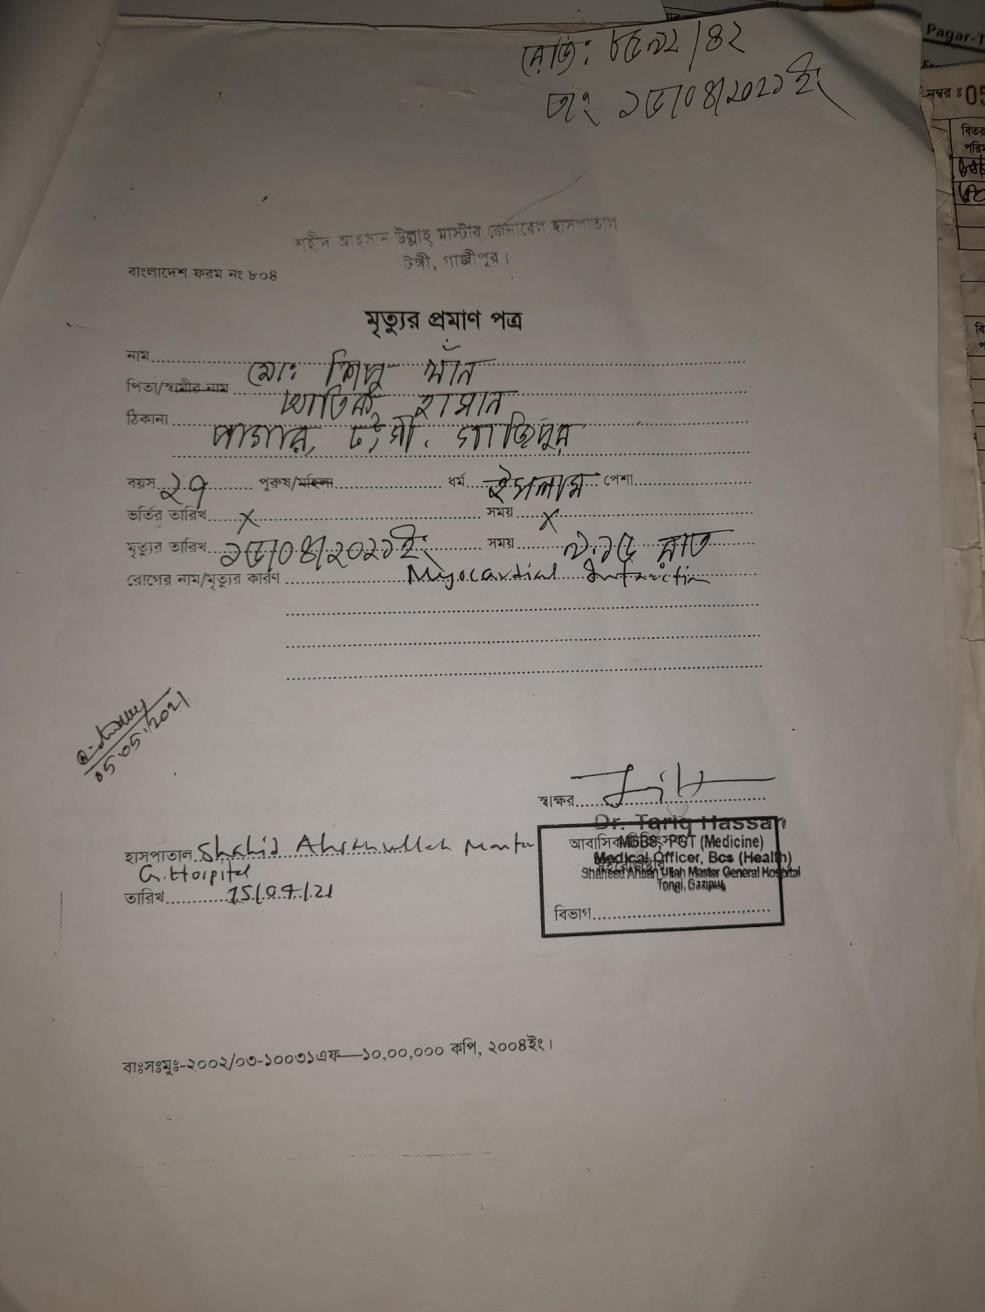 রেজি: ৮৫৯২/৪২
তাং ১৫/০৪/২০২১ইং
Pagar-T
নম্বর ঃ 05
শহীদ আহসান উল্লাহ মাস্টার জেনারেল হাসপাতাল
টঙ্গী, গাজীপুর।
বাংলাদেশ ফরম নং ৮০৪
মৃত্যুর প্রমাণ পত্র
নাম মোঃ শিপু খাঁন
পিতা/স্বামীর নাম আতিক হাসান
ঠিকানা পাগার, টঙ্গী, গাজিপুর
বয়স ২৭ পুরুষ/মহিলা ধর্ম ইসলাম পেশা
ভর্তির তারিখ X সময় X
মৃত্যুর তারিখ ১৫/০৪/২০২১ইং সময় ৯.১৫ রাত
রোগের নাম/মৃত্যুর কারণ Myocardial Infarction
05.05.2021
স্বাক্ষর
Dr. Tariq Hassan
MBBS, PGT (Medicine)
Medical Officer, Bcs (Health)
Shaheed Ahsan Ullah Master General Hospital
Tongi, Gazipur
হাসপাতাল Shahid Ahsanullah Master
G. Hospital
তারিখ 15/04/21
বিভাগ
বাঃসঃমুঃ-২০০২/০৩-১০০৩১এফ—১০,০০,০০০ কপি, ২০০৪ইং।